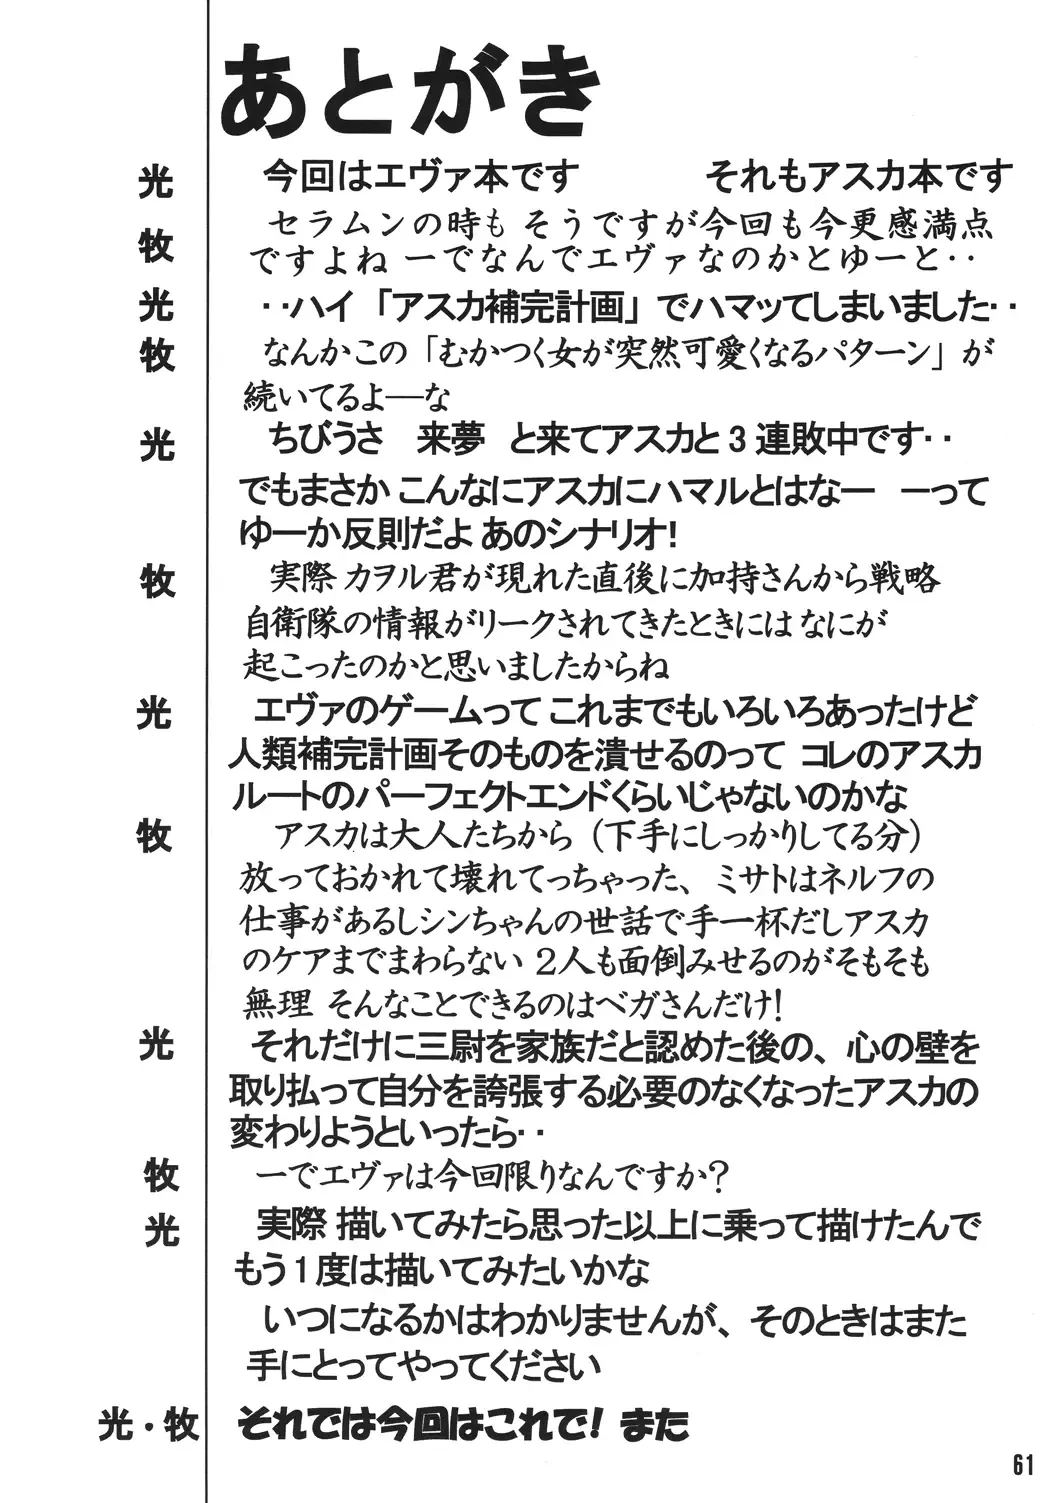 あとがき
光 今回はエヴァ本です それもアスカ本です
牧 セラムンの時も そうですが今回も今更感満点
ですよね ーでなんでエヴァなのかとゆーと‥
光 ‥ハイ「アスカ補完計画」でハマッてしまいました‥
牧 なんかこの「むかつく女が突然可愛くなるパターン」が
続いてるよ──な
光 ちびうさ 来夢 と来てアスカと3連敗中です‥
でもまさか こんなにアスカにハマルとはなー ーって
ゆーか反則だよ あのシナリオ!
牧 実際 カヲル君が現れた直後に加持さんから戦略
自衛隊の情報がリークされてきたときには なにが
起こったのかと思いましたからね
光 エヴァのゲームって これまでもいろいろあったけど
人類補完計画そのものを潰せるのって コレのアスカ
ルートのパーフェクトエンドくらいじゃないのかな
牧 アスカは大人たちから(下手にしっかりしてる分)
放っておかれて壊れてっちゃった、ミサトはネルフの
仕事があるしシンちゃんの世話で手一杯だしアスカ
のケアまでまわらない 2人も面倒みせるのがそもそも
無理 そんなことできるのはベガさんだけ!
光 それだけに三尉を家族だと認めた後の、心の壁を
取り払って自分を誇張する必要のなくなったアスカの
変わりようといったら‥
牧 ーでエヴァは今回限りなんですか?
光 実際 描いてみたら思った以上に乗って描けたんで
もう1度は描いてみたいかな
いつになるかはわかりませんが、そのときはまた
手にとってやってください
光・牧 それでは今回はこれで! また
61